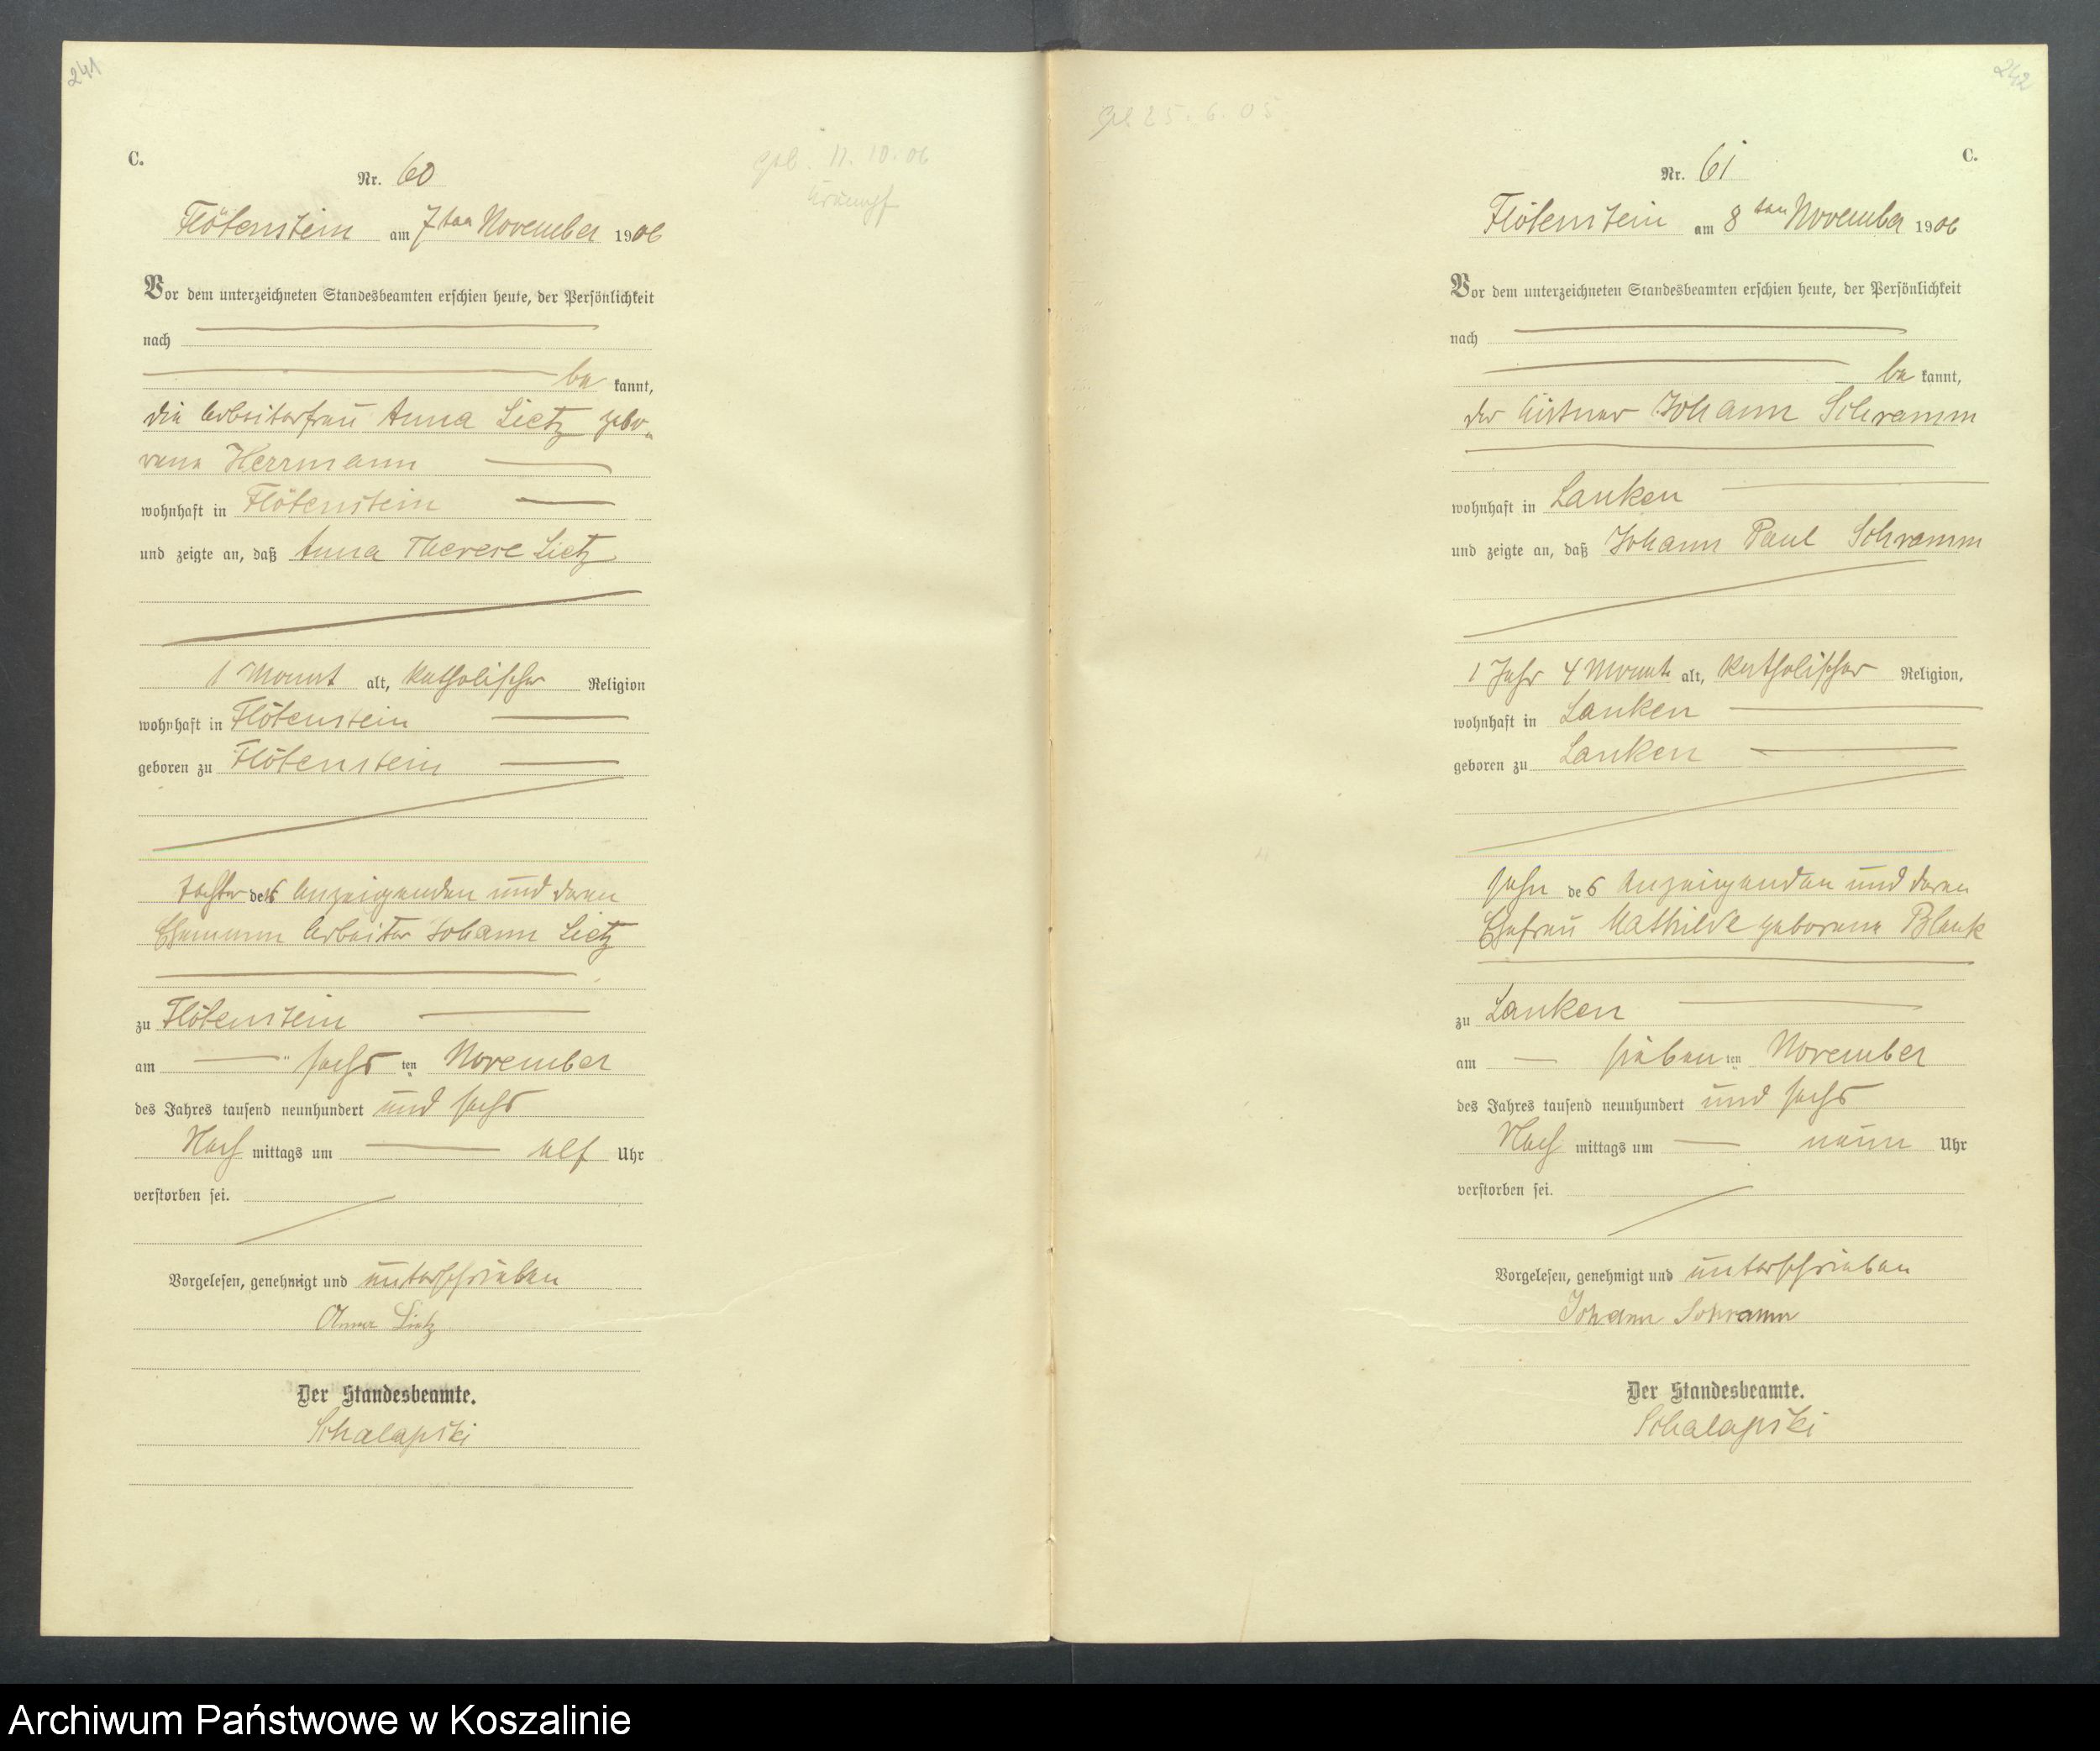 241
C.
Nr. 60
geb. 11. 10. 06
Krämpf
Flötenstein am 7ten November 1906
Vor dem unterzeichneten Standesbeamten erschien heute, der Persönlichkeit
nach
be kannt,
die Arbeiterfrau Anna Lietz gebo-
rene Herrmann
wohnhaft in Flötenstein
und zeigte an, daß Anna Therese Lietz
1 Monat alt, katholischer Religion
wohnhaft in Flötenstein
geboren zu Flötenstein
Tochter der Anzeigenden und deren
Ehemann Arbeiter Johann Lietz
zu Flötenstein
am sechs ten November
des Jahres tausend neunhundert und sechs
Nach mittags um elf Uhr
verstorben sei.
Vorgelesen, genehmigt und unterschrieben
Anna Lietz
Der Standesbeamte.
Schalapski
242
25. 6. 05
C.
Nr. 61
Flötenstein am 8ten November 1906
Vor dem unterzeichneten Standesbeamten erschien heute, der Persönlichkeit
nach
be kannt,
der Johann Schramm
wohnhaft in Lanken
und zeigte an, daß Johann Paul Schramm
1 Jahr 4 Monate alt, katholischer Religion,
wohnhaft in Lanken
geboren zu Lanken
Sohn des Anzeigenden und deren
Ehefrau Mathilde geborene Blank
zu Lanken
am sieben ten November
des Jahres tausend neunhundert und sechs
Nach mittags um neun Uhr
verstorben sei.
Vorgelesen, genehmigt und unterschrieben
Johann Schramm
Der Standesbeamte.
Schalapski
Archiwum Państwowe w Koszalinie